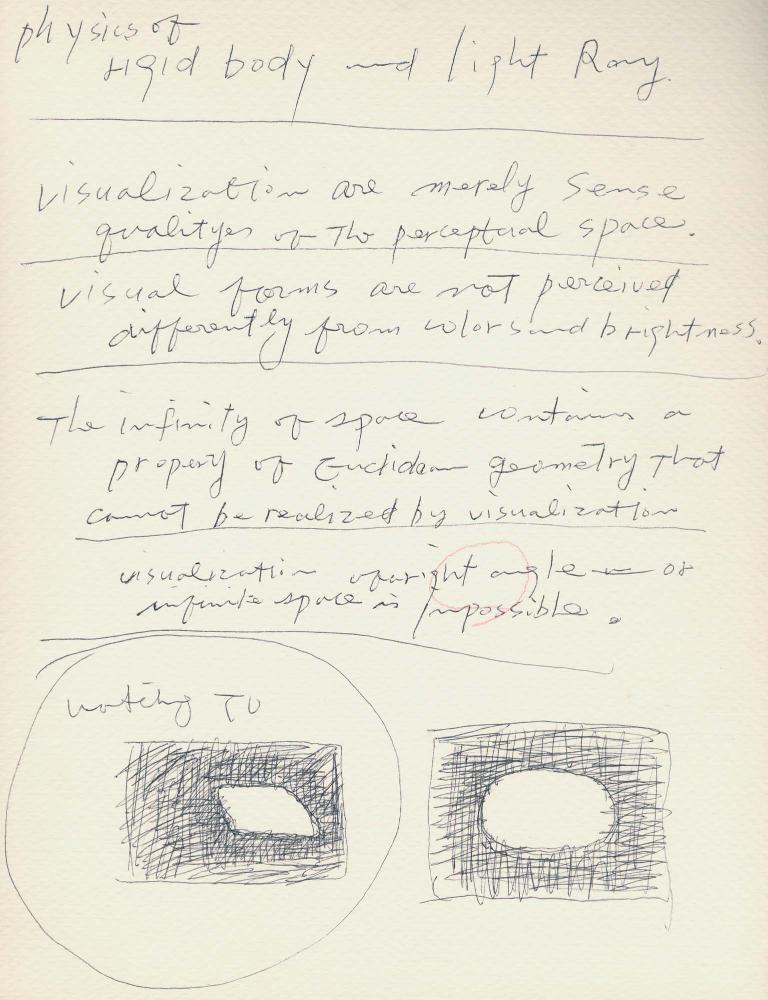 physics of
rigid body and light Ray.
visualization are merely sense
qualityes of The perceptual space.
visual forms are not perceived
differently from colors and brightness.
The infinity of space contains a
property of Euclidean geometry That
cannot be realized by visualization
visualization of a right angle or
infinite space is impossible.
TV